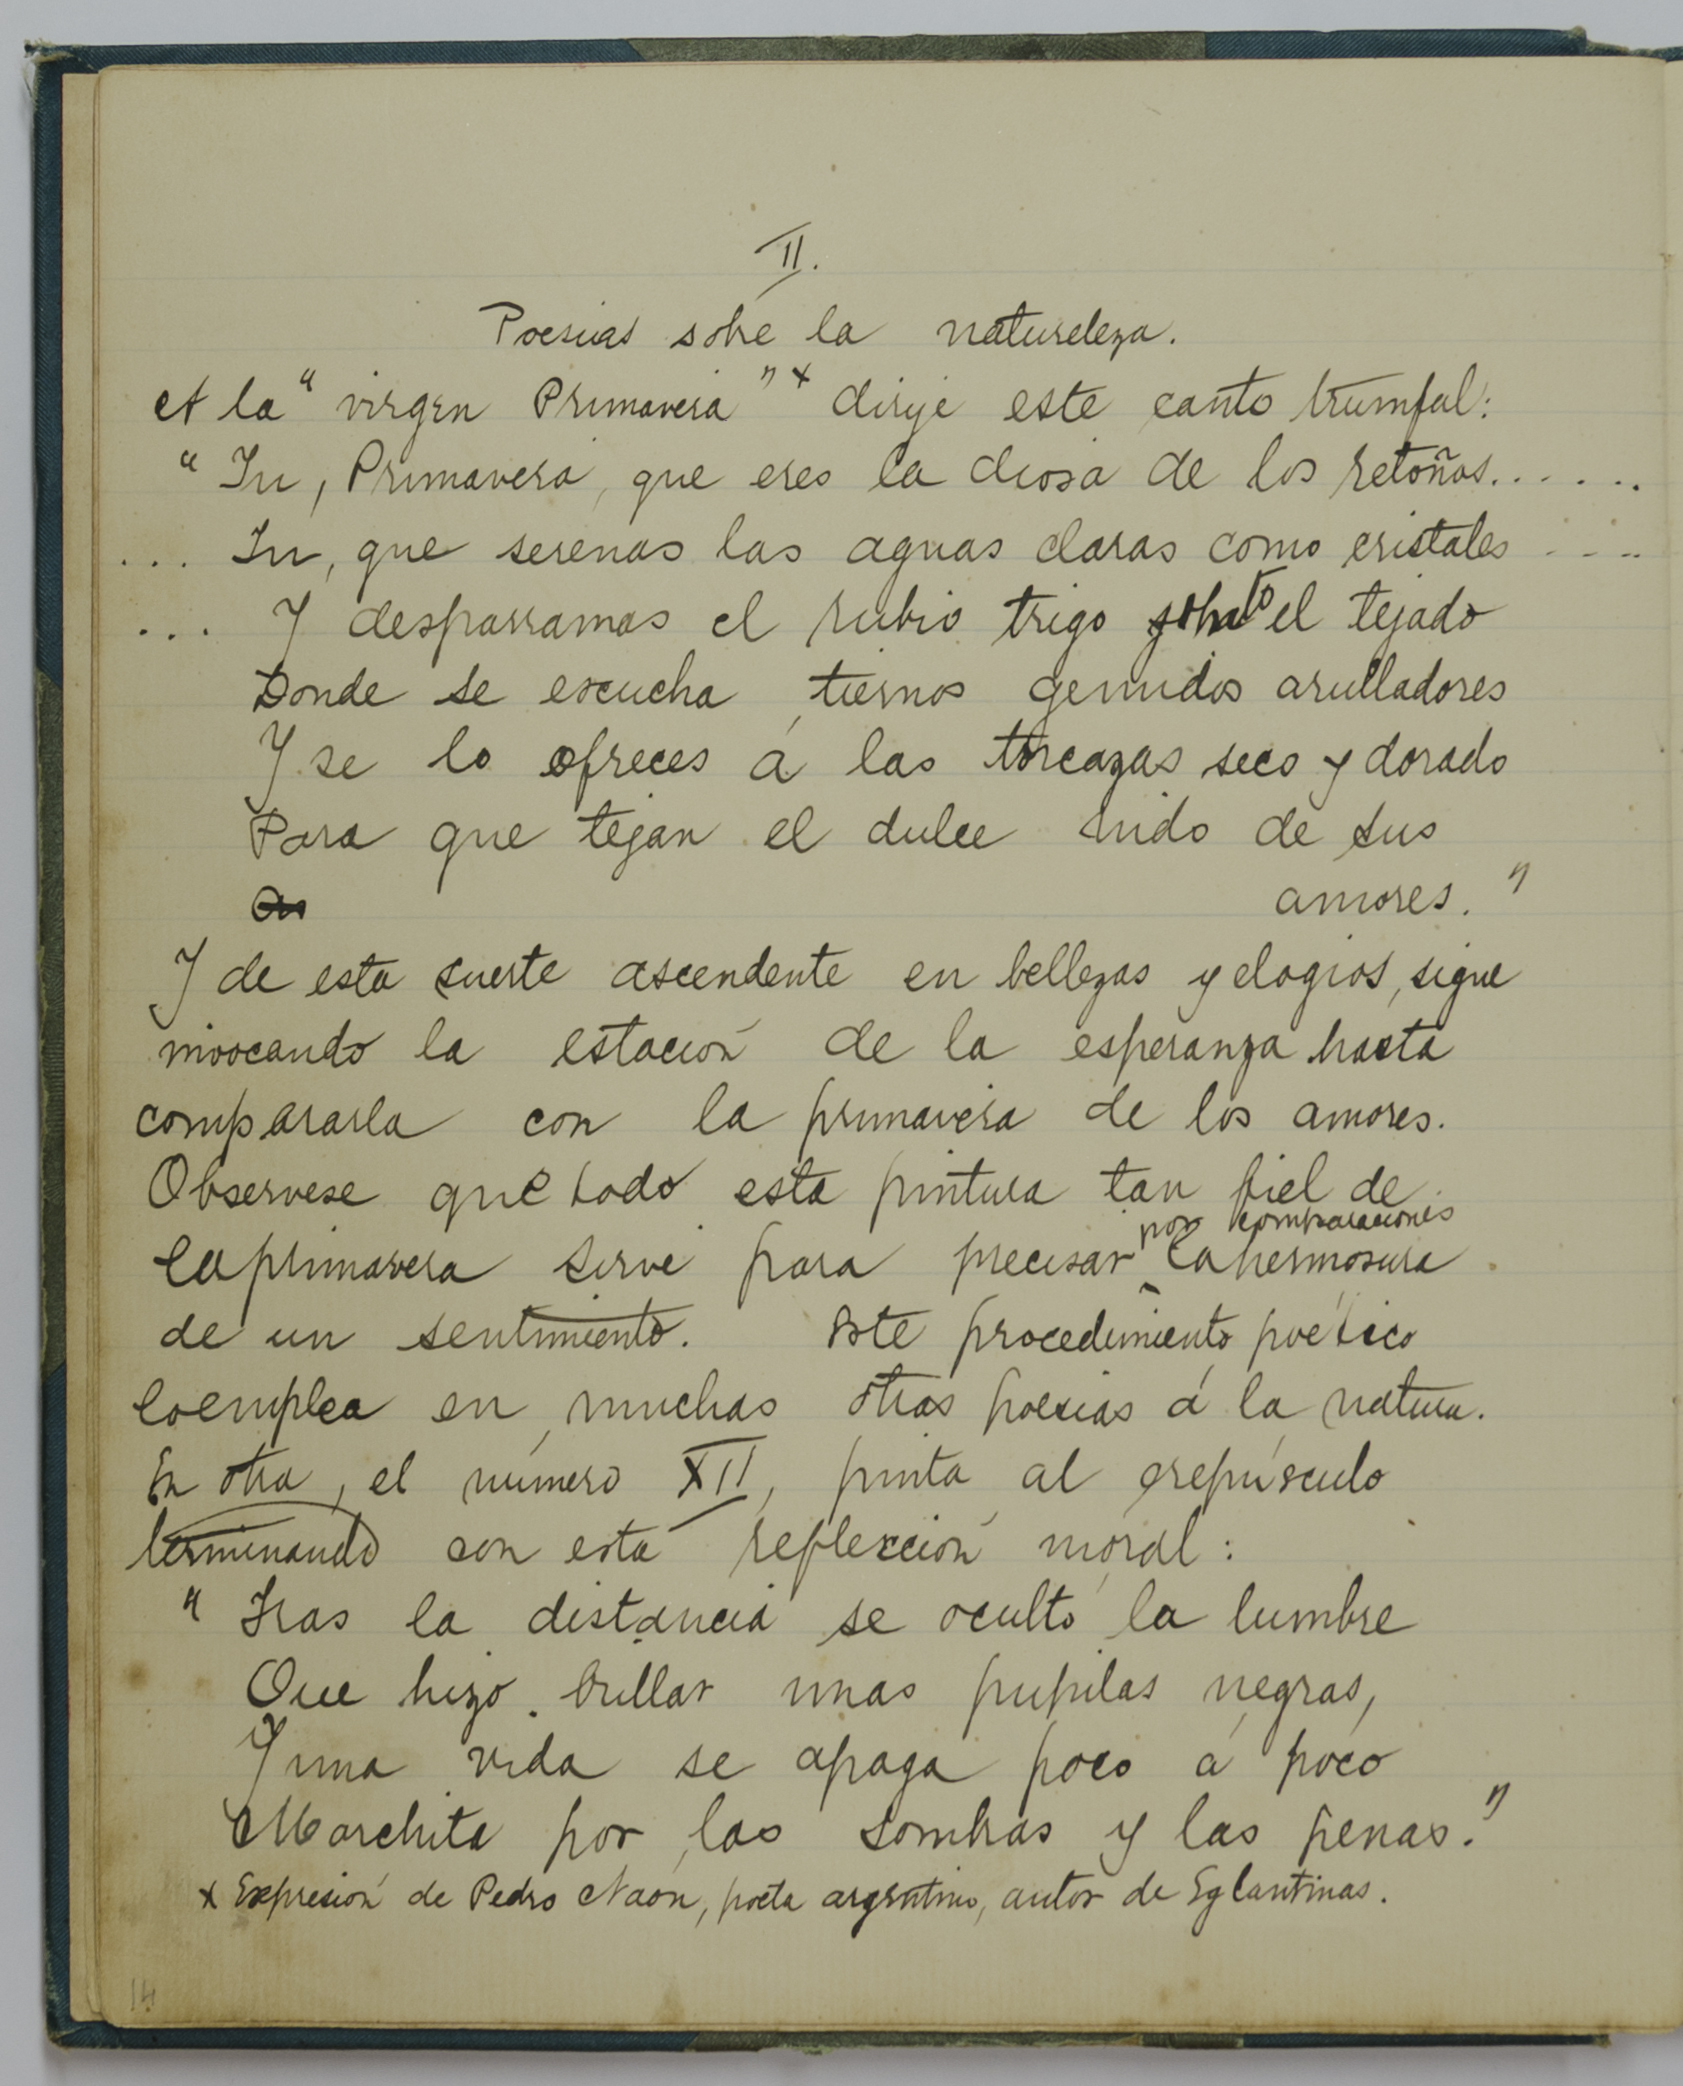 II.
Poesias sobre la natureleza.
A la "virgen Primavera" x dirije este canto triumfal:
"Tu, Primavera, que eres la diosa de los retoños......
... Tu, que serenas las aguas claras como cristales ....
... Y desparramas el rubio trigo el tejado
Donde se escucha tiernos gemidos arulladores
Y se lo ofreces á las torcazas seco y dorado
Para que tejan el dulce nido de sus
amores."
Y de esta suerte ascendente en bellezas y elogios, sigue
invocando la estación de la esperanza hasta
compararla con la primavera de los amores.
Observese que todo esta pintura tan fiel de
por comparaciones
la primavera sirve para precisar la hermosura
de un sentimiento. Este procedimiento poético
lo emplea en muchas otras poesias á la natura.
En otra, el número XII, pinta al crepúsculo
terminando con esta reflexción moral:
"Tras la distancia se ocultó la lumbre
Que hizo brillar unas pupilas negras,
Y una vida se apaga poco á poco
Marchita por las sombras y las penas."
x Expresión de Pedro Naón, poeta argentino, autor de Eglantinas.
14